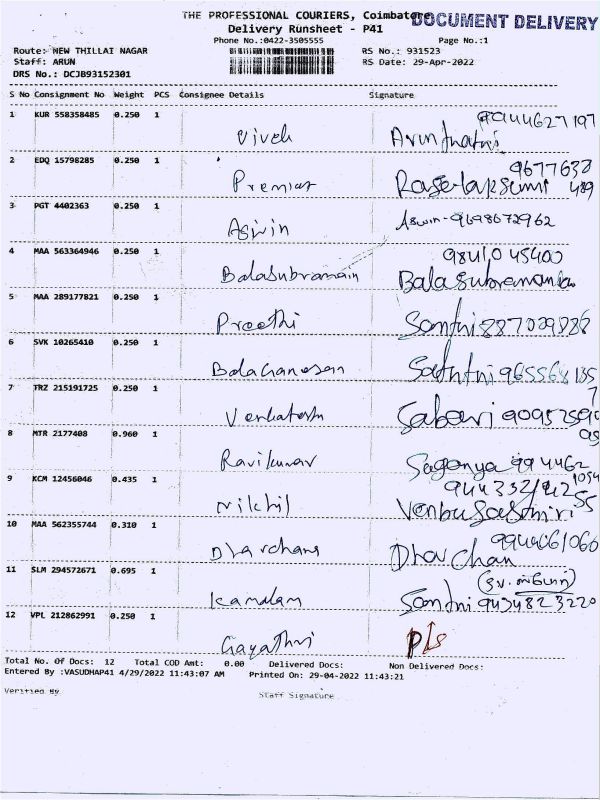 THE PROFESSIONAL COURIERS, Coimbatore
DOCUMENT DELIVERY
Delivery Runsheet - P41
Phone No.:0422-3505555
Page No.:1
Route: NEW THILLAI NAGAR
RS No.: 931523
Staff: ARUN
RS Date: 29-Apr-2022
DRS No.: DCJB93152301
S No Consignment No Weight PCS Consignee Details Signature
1 KUR 558358485 0.250 1
Vivek
2 EDQ 15798285 0.250 1
9677638
Premier
489
3 PGT 4402363 0.250 1
Aswin Aswin-9698672962
4 MAA 563364946 0.250 1
98410 45400
Balasubramain
5 MAA 289177821 0.250 1
Preethi Santhi
6 SVK 10265410 0.250 1
7 TRZ 215191725 0.250 1
Venkatesh Sabari
8 MTR 2177408 0.960 1
Ravikumar
9 KCM 12456046 0.435 1
Nikhil
10 MAA 562355744 0.310 1
Dharchana Dharchan
11 SLM 294572671 0.695 1
Kamalam Santhi 9434823220
12 VPL 212862991 0.250 1
Gayathri
Total No. Of Docs: 12 Total COD Amt: 0.00 Delivered Docs: Non Delivered Docs:
Entered By :VASUDHAP41 4/29/2022 11:43:07 AM Printed On: 29-04-2022 11:43:21
Verified By
Staff Signature